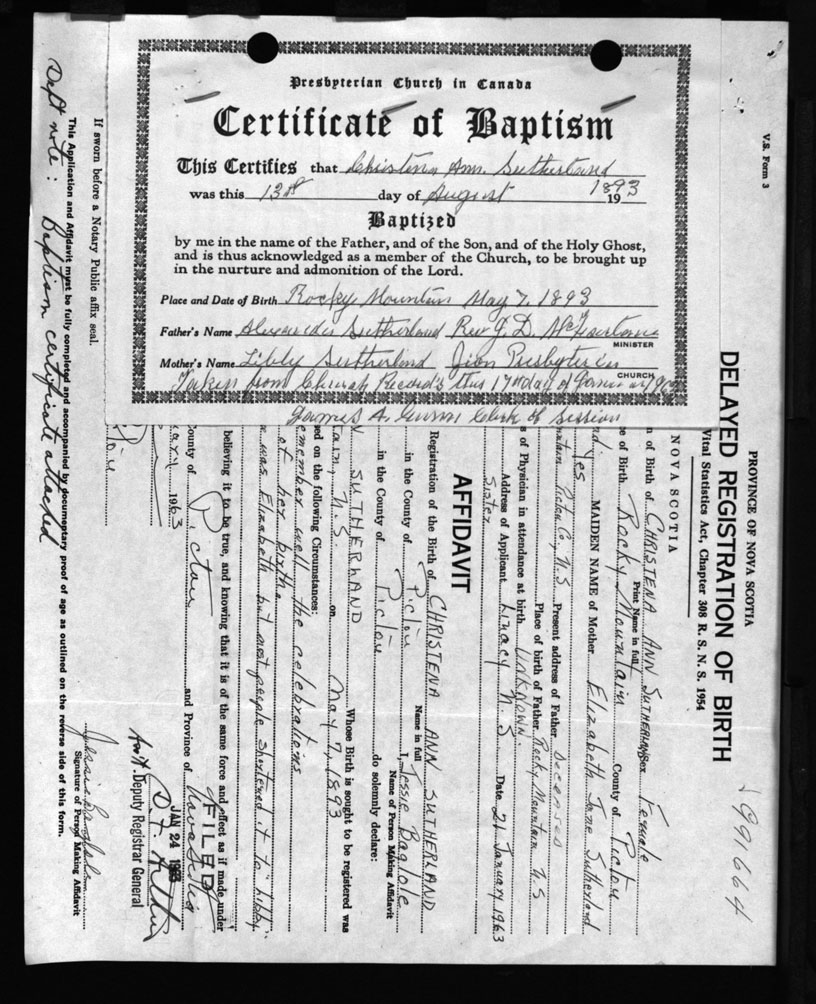 Presbyterian Church in Canada
Certificate of Baptism
This Certifies that Christena Ann Sutherland
was this 13th day of August 1893
19
Baptized
by me in the name of the Father, and of the Son, and of the Holy Ghost,
and is thus acknowledged as a member of the Church, to be brought up
in the nurture and admonition of the Lord.
Place and Date of Birth Rocky Mountain May 7, 1893
Father's Name Alexander Sutherland Rev J. D.
MINISTER
Mother's Name Libby Sutherland Zion Presbyterian
CHURCH
Taken from Church Records this 17th day of January 1963
James A. Clerk of Session
V.S. Form 3
PROVINCE OF NOVA SCOTIA
DELAYED REGISTRATION OF BIRTH
Vital Statistics Act, Chapter 308 R. S. N. S. 1954
991664
NOVA SCOTIA
n of Birth of CHRISTENA ANN SUTHERLAND Sex Female
Print Name in full
e of Birth Rocky Mountain County of Pictou
MAIDEN NAME of Mother Elizabeth Jane Sutherland
yes
ntain Pictou Co., N.S Present address of Father Deceased
Place of birth of Father Rocky Mountain N.S
s of Physician in attendance at birth Unknown.
Address of Applicant N.S Date 21 January 1963
Sister
AFFIDAVIT
Registration of the Birth of CHRISTENA ANN SUTHERLAND
Name in full
in the County of Pictou I, Jessie Baglole
Name of Person Making Affidavit
in the County of Pictou do solemnly declare:
SUTHERLAND Whose Birth is sought to be registered was
tain, N.S. on May 7, 1893
ed on the following Circumstances:
emember well the celebrations
of her birth
was Elizabeth but most people shortened it to "Libby"
believing it to be true, and knowing that it is of the same force and effect as if made under
ounty of Pictou and Province of Nova Scotia
uary 1963
FILED
JAN 24 1963
Deputy Registrar General
Jessie Baglole
Signature of Person Making Affidavit
If sworn before a Notary Public affix seal.
This Application and Affidavit must be fully completed and accompanied by documentary proof of age as outlined on the reverse side of this form.
Dept note: Baptism certificate attached